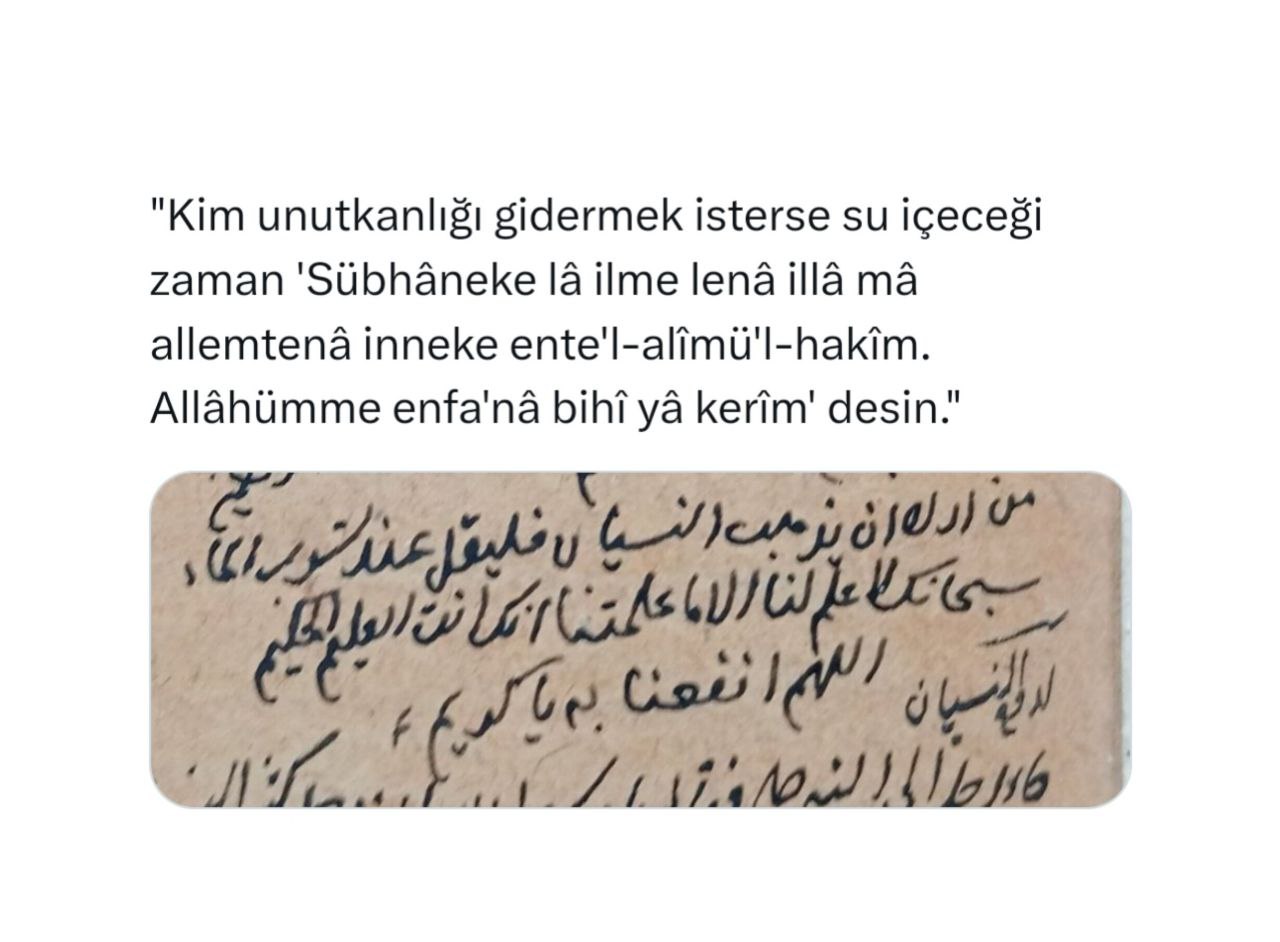 "Kim unutkanlığı gidermek isterse su içeceği
zaman 'Sübhâneke lâ ilme lenâ illâ mâ
allemtenâ inneke ente'l-alîmü'l-hakîm.
Allâhümme enfa'nâ bihî yâ kerîm' desin."
من اراد ان يذهب النسيان فليقل عند شرب الماء
سبحانك لا علم لنا الا ما علمتنا انك انت العليم الحكيم
لدفع النسيان
اللهم انفعنا به يا كريم